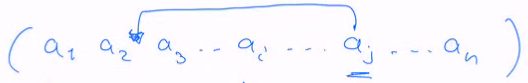 ( a₁ a₂ a₃ .. aᵢ ... aⱼ ... aₙ )